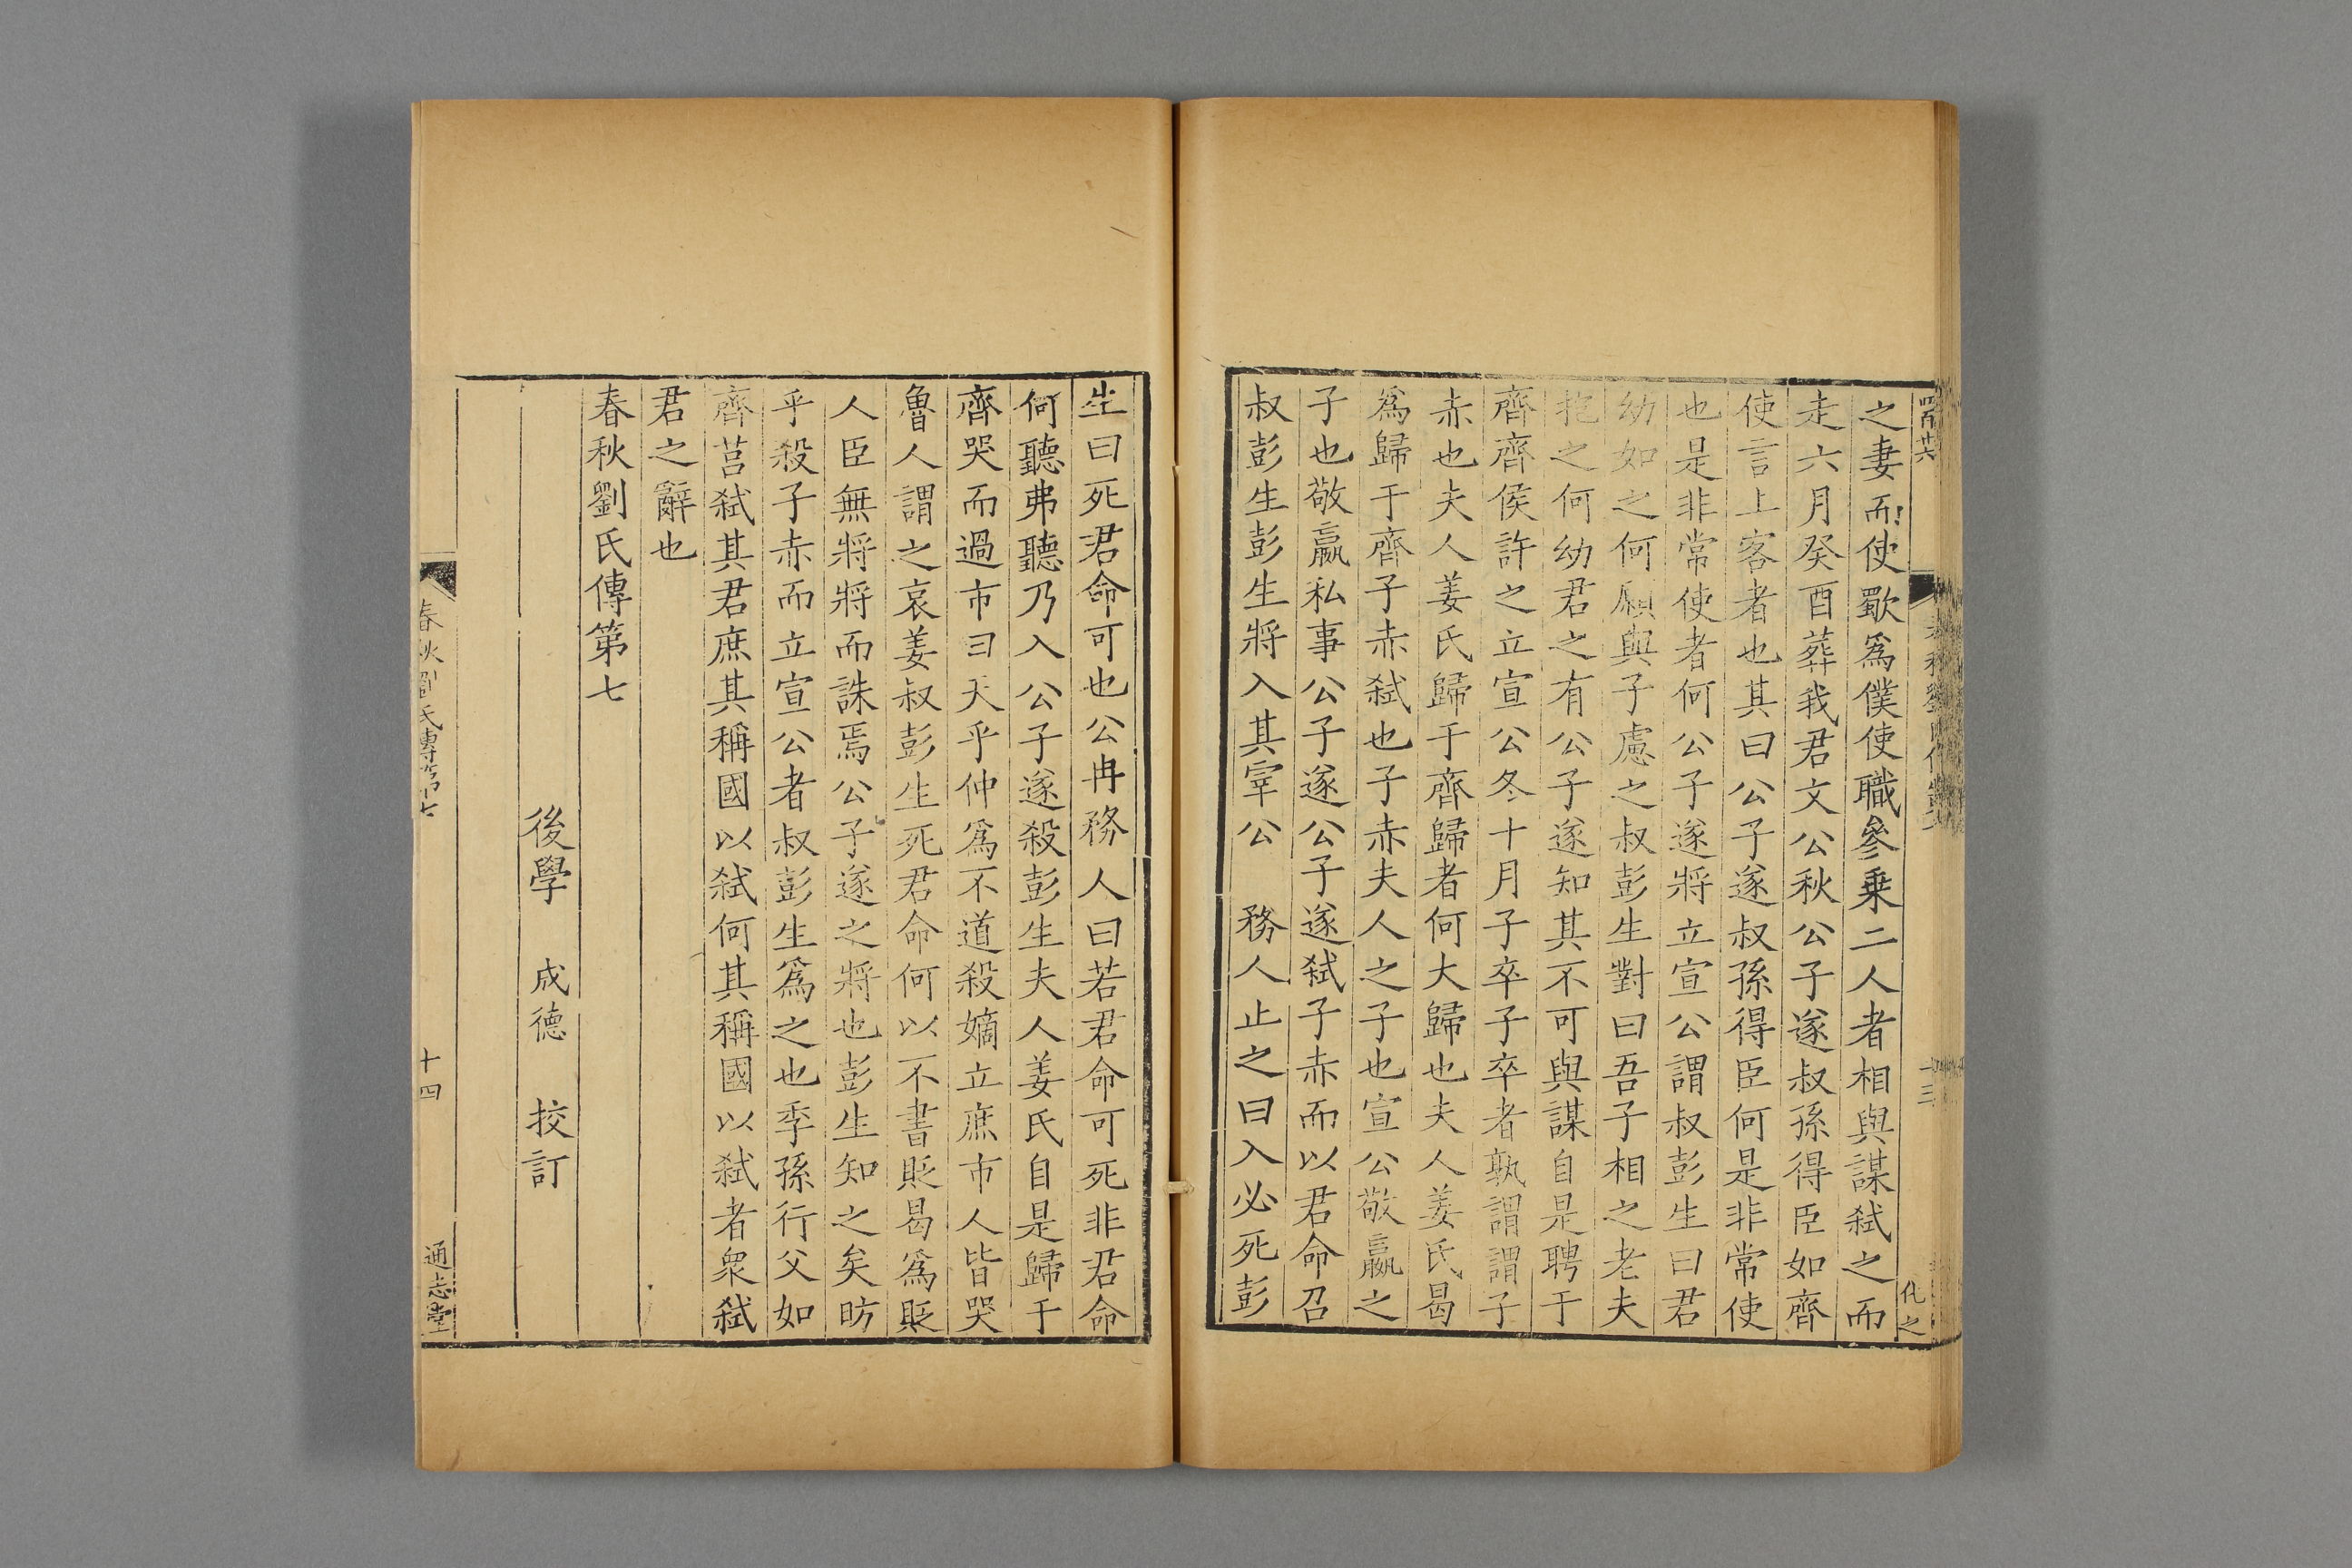 之妻而使歜爲僕使職參乗二人者相與謀弑之而
走六月癸酉葬我君文公秋公子遂叔孫得臣如齊
使言上客者也其曰公子遂叔孫得臣何是非常使
也是非常使者何公子遂將立宣公謂叔彭生曰君
幼如之何願與子慮之叔彭生對曰吾子相之老夫
抱之何幼君之有公子遂知其不可與謀自是聘于
齊齊侯許之立宣公冬十月子卒子卒者孰謂謂子
赤也夫人姜氏歸于齊歸者何大歸也夫人姜氏曷
爲歸于齊子赤弑也子赤夫人之子也宣公敬嬴之
子也敬嬴私事公子遂公子遂弑子赤而以君命召
叔彭生彭生將入其宰公 務人止之曰入必死彭
生曰死君命可也公冉務人曰若君命可死非君命
何聽弗聽乃入公子遂殺彭生夫人姜氏自是歸于
齊哭而過市曰天乎仲爲不道殺嫡立庶市人皆哭
魯人謂之哀姜叔彭生死君命何以不書貶曷爲貶
人臣無將將而誅焉公子遂之將也彭生知之矣昉
乎殺子赤而立宣公者叔彭生爲之也季孫行父如
齊莒弑其君庶其稱國以弑何其稱國以弑者衆弑
君之辭也
春秋劉氏傳第七
後學 成德 校訂
春秋劉氏傳第七
十四
通志堂